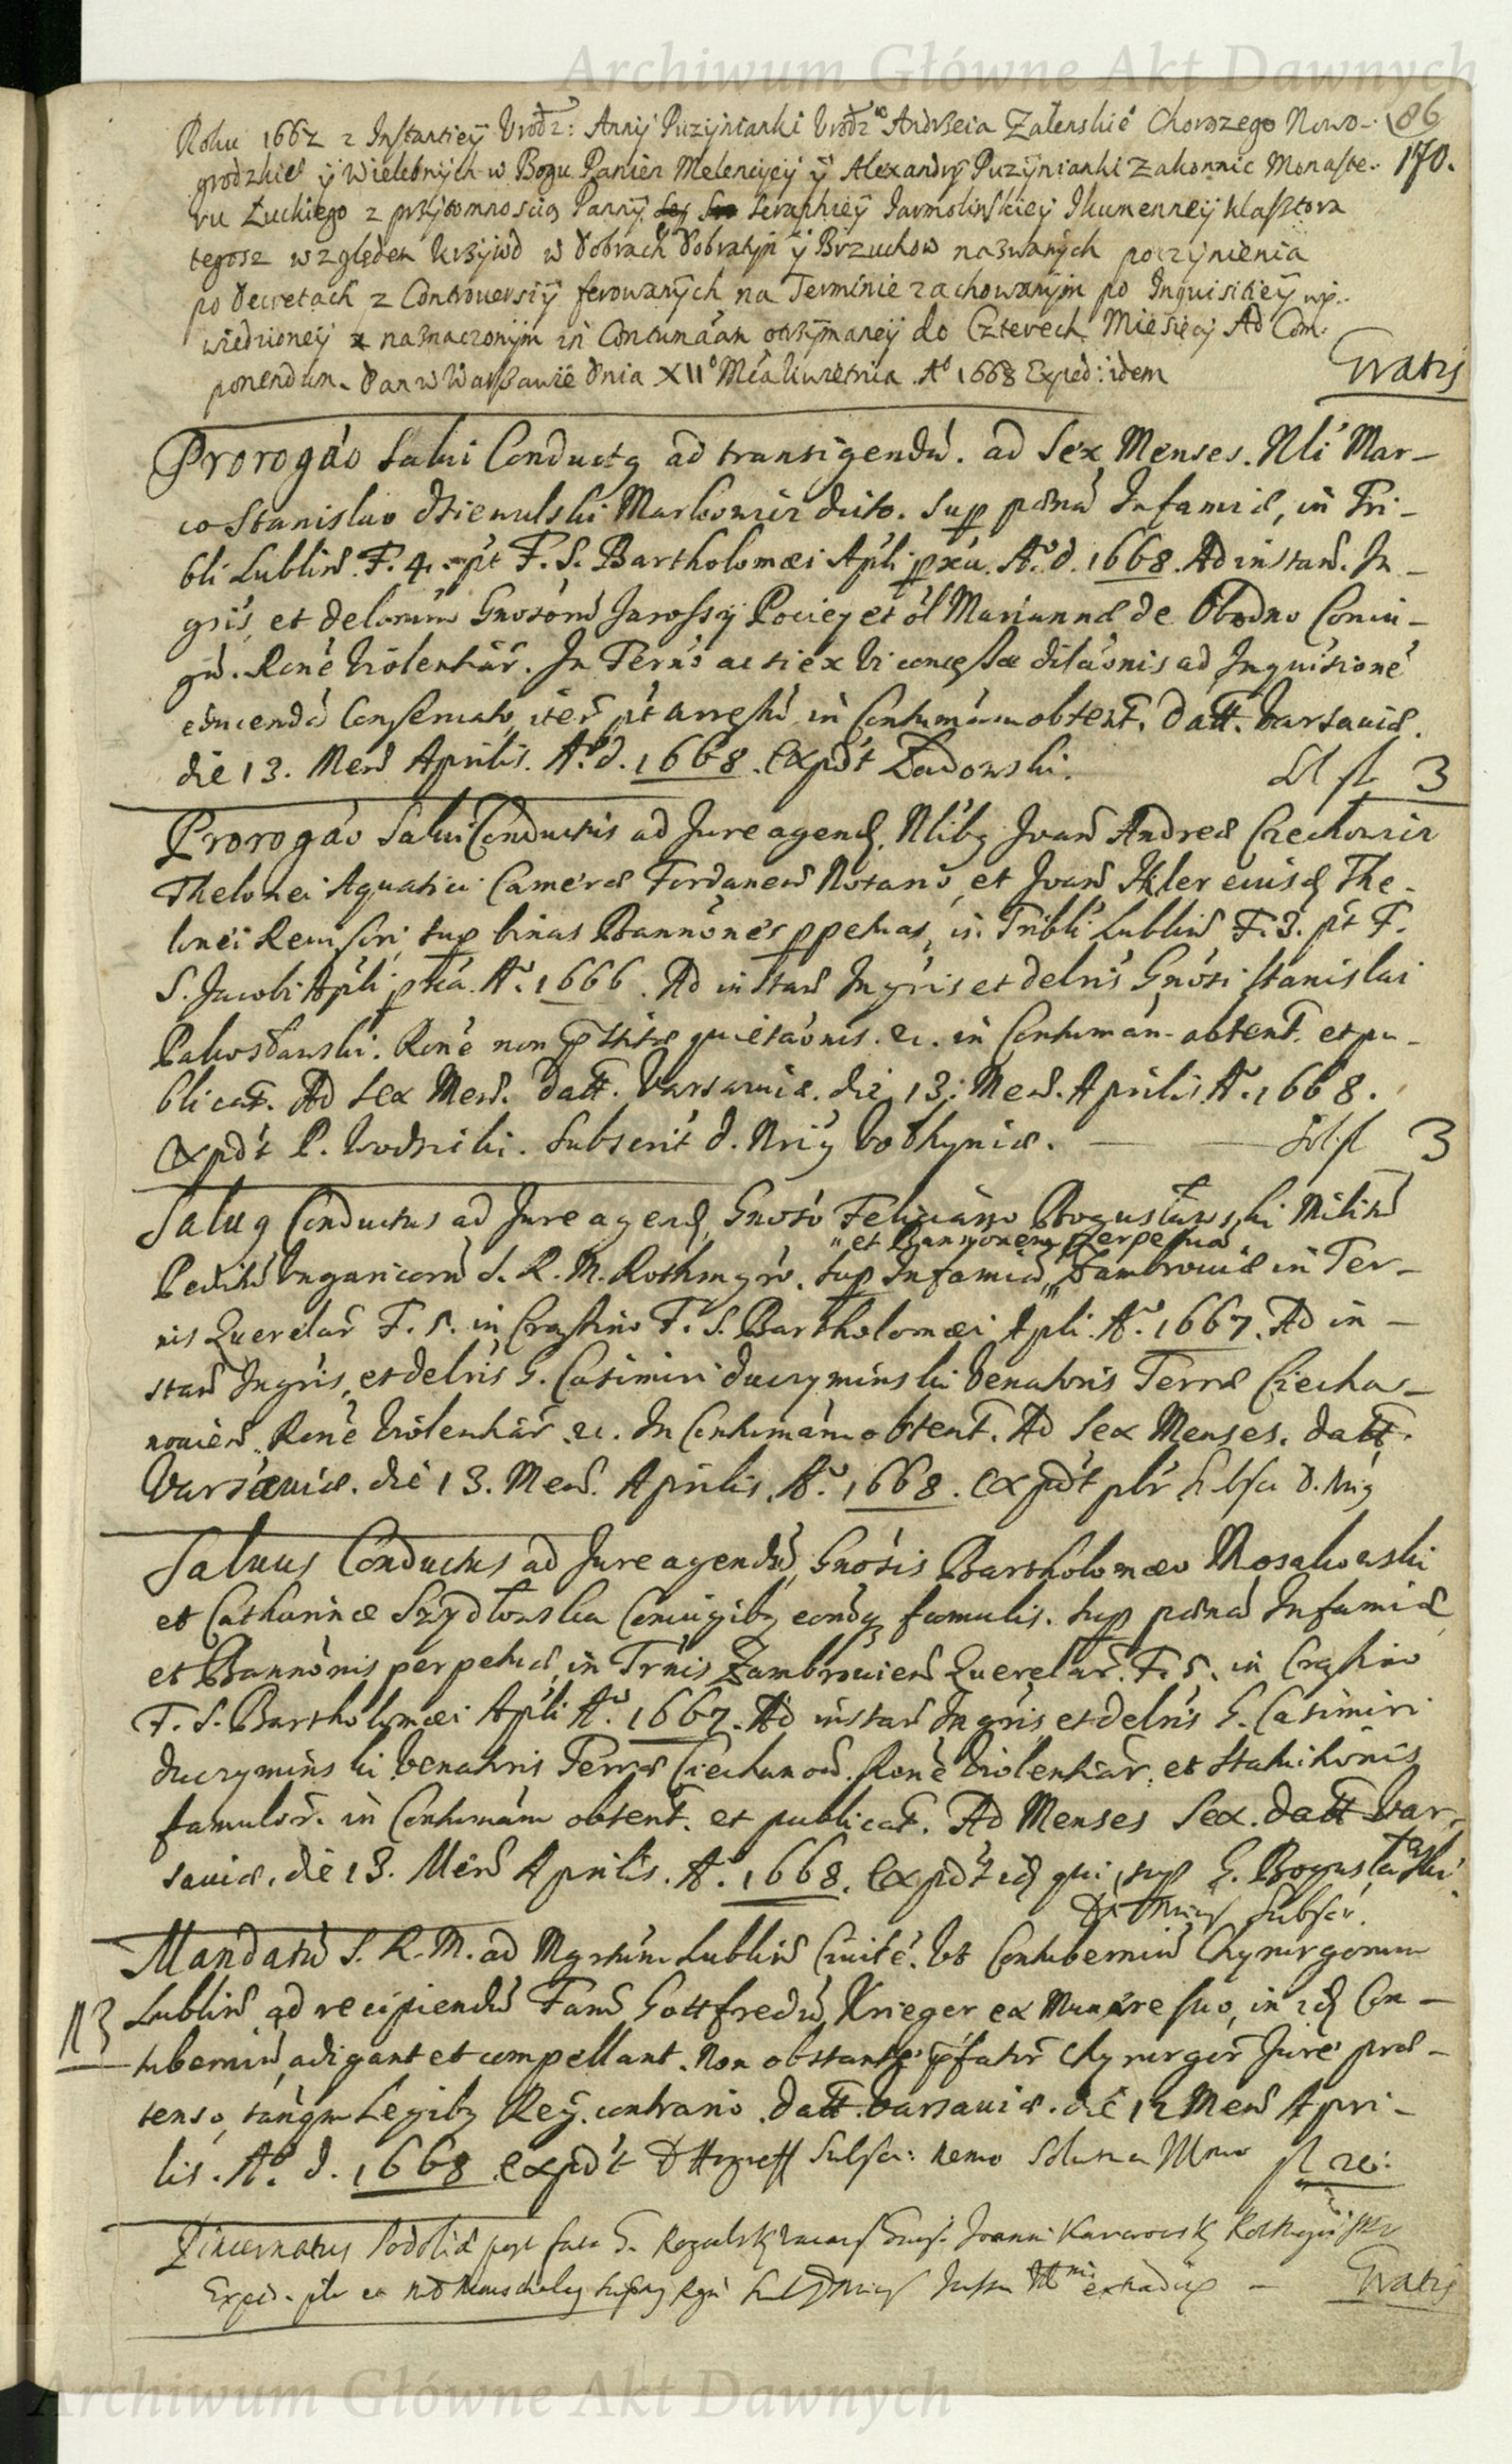 Archiwum Główne Akt Dawnych
86
170.
Roku 1667 z Instantiey Vrodz: Anny Puzynianki Vrodz° Andrzeia Zaleskie° Chorązego Nowo-
grodzkie° y Wielebnych w Bogu Panien Melencyey y Alexandry Puzynianki Zakonnic Monaste-
ru Łuckiego z przytomnoscią Panny Seraphiey Jarmolinskiey Ihumenney klasztora
tegosz względem krzywd w dobrach Dobratyn y Brzuchow nazwanych poczynienia
po decretach z Controuersiy ferowanych na Terminie zachowanym po Inquisitiey wy-
wiedzioney naznaczonym in Contumaām otrzymaney do Czterech Miesięcy Ad Com-
ponendum. Dan w Warszawie dnia XII° Mca kwietnia A° 1668 Exped: idem Gratis
Prorogāo Salui Conductq ad transigendū. ad Sex Menses. Nli Mar-
co Stanislao Dziewulski Markowicz dicto. Sup pœnā Infamiæ, in Tri-
bli Lublin. F. 4. pt F. S. Bartholomæi Apli pxā. A° d. 1668. Ad instan. In-
gris, et delorum Gnosorū Jarossy Pociey et ol Mariannæ de Obodno Coniu-
gū. Rone Violentiār. In Terno actiex Vi concessæ dilāonis ad Inquisitionē
educendā Conseruato, iter pt arrestū in Contumām obtent. Datt. Varsauiæ.
die 13. Mens Aprilis. A° d. 1668. Expdt Zadowski. Sl fl 3
Prorogāo Salui Conductus ad Jure agend. Nlibq Joan Andreæ Czechowicz
Thelonei Aquatici Cameræ Fordanen Notario, et Joan Hler eiusd The-
lonei Reuisori, sup binas Bannōnes ppetuas, in Tribli Lublin F. 3. pt F.
S. Jacobi Apli pxā. A° 1666. Ad instan Ingris et delris Gnosi Stanislai
Pakosławski. Rone non pstitæ quietāonis. &c. in Contumām obtent. et pu-
blicat. Ad Sex Men. Datt. Varsauiæ. die 13. Men. Aprilis A° 1668.
Expdt P. Wodzicki. Subscrit d. Nriq Volhyniæ. Sol fl 3
Saluq Conductus ad Jure agend, Gnoso Feliciano Bogusławski Militū
„et Bannonem Perpetuā
Peditū Vngaricorū S. R. M. Rothmgro. Sup Infamiā „Zambrouiæ in Ter-
nis Querelar F. 5. in Crastino F. S. Bartholomæi Apli A° 1667. Ad in-
stan Ingris, et delris G. Casimiri Duczyminski Venatoris Terræ Ciecha-
nouien. Rone Violentiār &c. In Contumām obtent. Ad Sex Menses. Datt.
Varsauiæ. die 13. Men. Aprilis A° 1668. Expdt plr Subsc D. Nriq
Saluus Conductus ad Jure agendū, Gnosis Bartholomæo Rosakowski
et Catharinæ Szydłowska Coniugibq eordq famulis. Sup pœnā Infamiæ
et Bannōnis perpetuæ in Trnis Zambrouien Querelar. F. 5. in Crastino
F. S. Bartholomæi Apli A° 1667. Ad instan Ingris, et delris G. Casimiri
Duczyminski Venatoris Terræ Ciechanou. Rone Violentiār, et Statutionis
famulor. in Contumām obtent. et publicat. Ad Menses Sex. Datt Var-
sauiæ. die 13. Mens Aprilis. A° 1668. Expdt id qui sup G. Bogusławski
Subscr.
Mandatū S. R. M. ad Mgrtum Lublin Ciuitē. Vt Contubernium Chyrurgorum
N3 Lublin ad recipiendū Fam Gottfredū Krieger ex Munere suo, in id Con-
tuberniū, adigant et compellant. Non obstante pfator Chyrurgor Jure præ-
tenso, tanqm Legibq Reg. contrario. Datt. Varsauiæ. die 12 Mens Apri-
lis. A° d. 1668 expdt Subsc: nemo fl 20:
Pincernatus Podoliæ post fata G. Joanni Karwowski
Exped. Gratis
Archiwum Główne Akt Dawnych